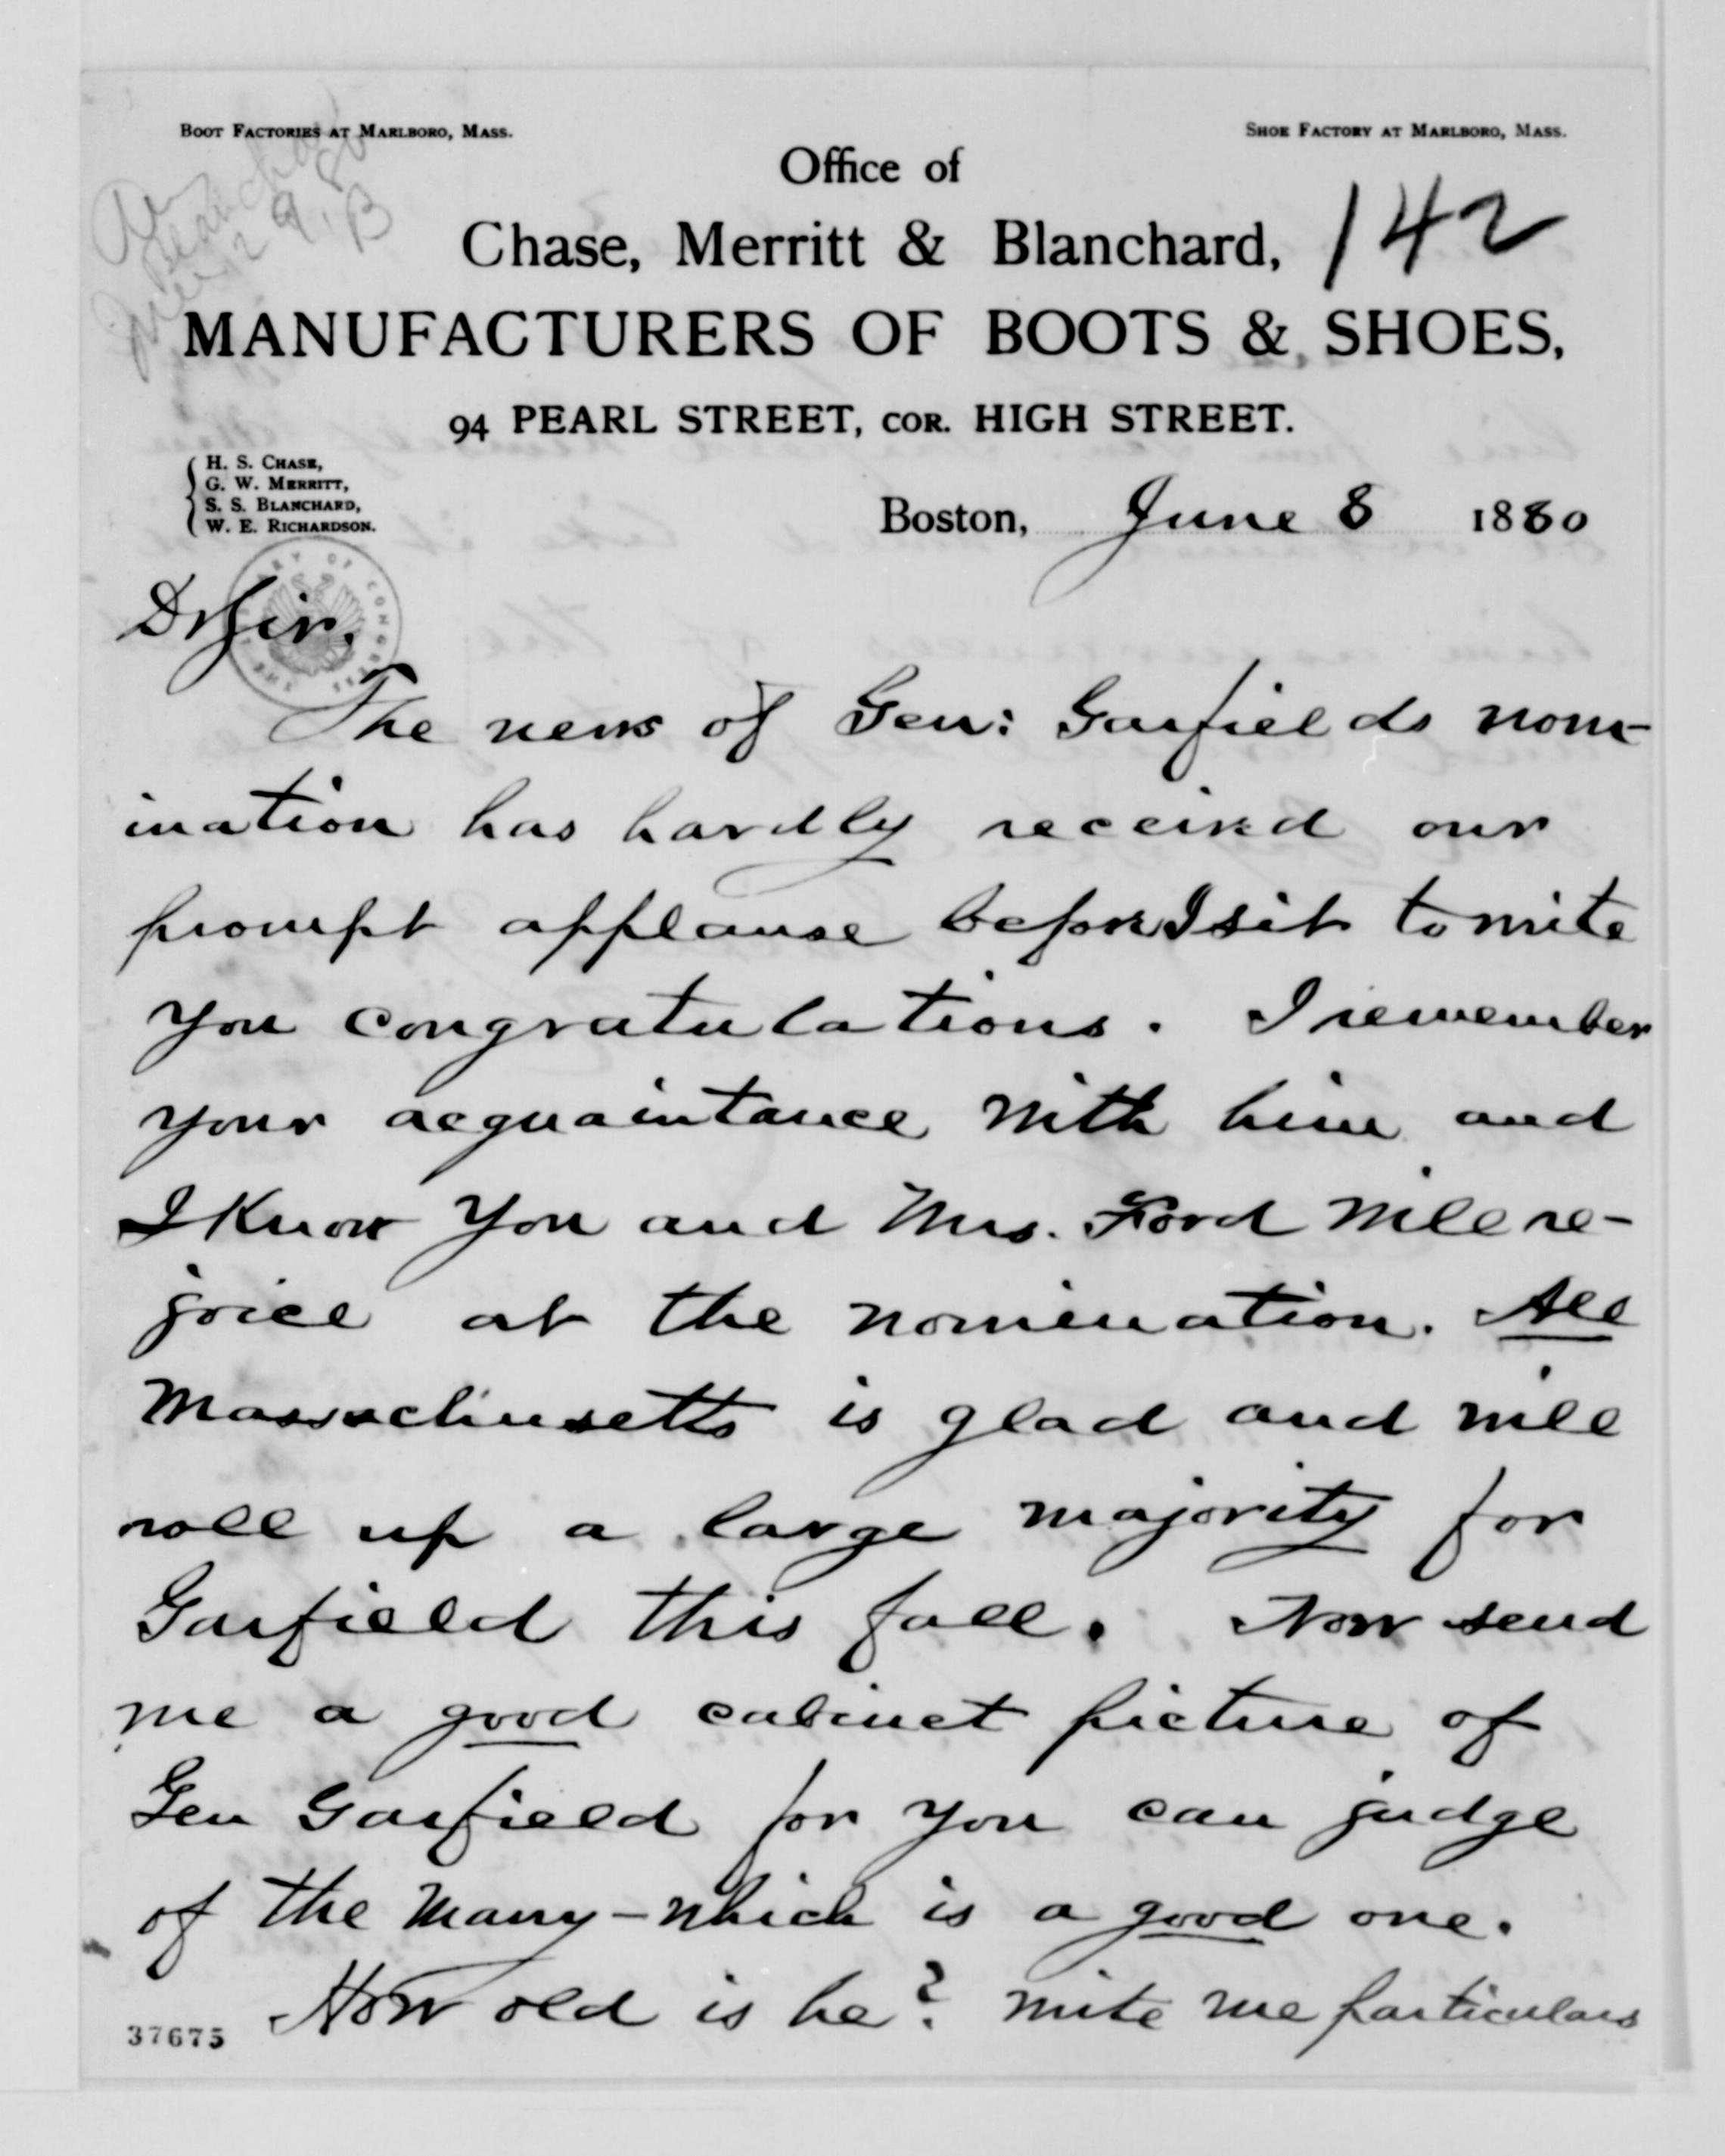 BOOT FACTORIES AT MARLBORO, MASS.
SHOE FACTORY AT MARLBORO, MASS.
Office of
Chase, Merritt & Blanchard,
142
MANUFACTURERS OF BOOTS & SHOES,
94 PEARL STREET, COR. HIGH STREET.
H. S. CHASE,
G. W. MERRITT,
S. S. BLANCHARD,
W. E. RICHARDSON.
Boston, June 8 1880
Dr Sir,
The news of Gen: Garfields nom-
ination has hardly received our
prompt applause before I sit to write
you congratulations. I remember
your acquaintance with him and
I know you and Mrs. Ford will re-
joice at the nomination. All
Massachusetts is glad and will
roll up a large majority for
Garfield this fall. Now send
me a good cabinet picture of
Gen Garfield for you can judge
of the many - which is a good one.
How old is he? write me particulars
37675